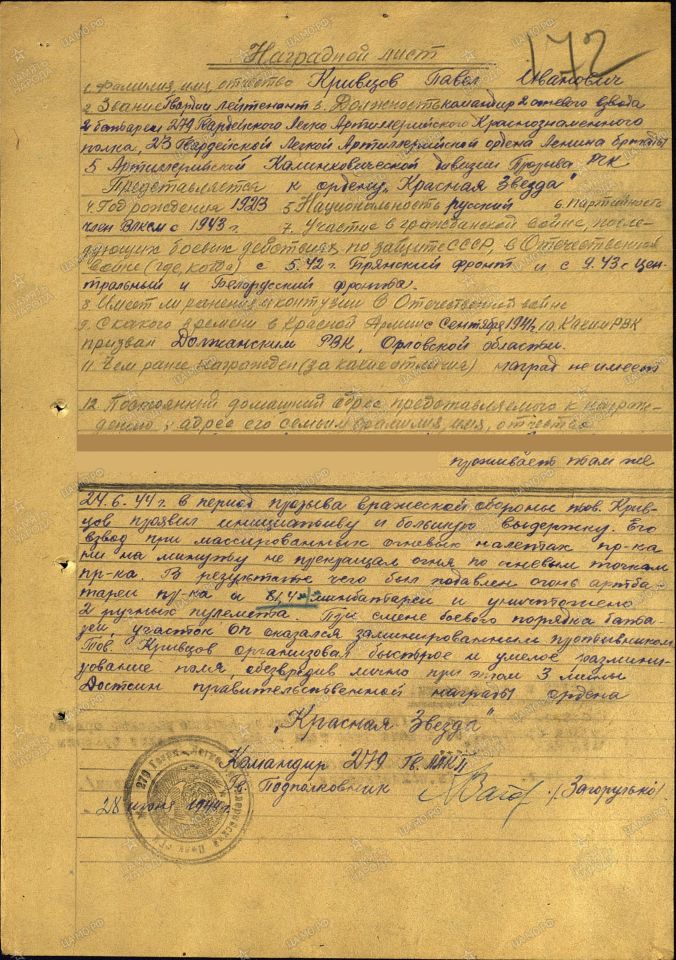 172
Наградной лист
1. Фамилия, имя, отчество Кривцов Павел Иванович
2. Звание Гвардии лейтенант 3. Должность командир 2 огневого взвода
2 батареи 279 Гвардейского Легко Артиллерийского Краснознаменного
полка, 23 Гвардейской Легкой Артиллерийской ордена Ленина бригады
5 Артиллерийской Калинковической дивизии Прорыва РГК
Представляется к ордену „Красная Звезда"
4. Год рождения 1923 5. Национальность русский 6. Партийность
член ВЛКСМ с 1943 г. 7. Участие в гражданской войне, после-
дующих боевых действиях по защите СССР, в Отечественной
войне (где, когда) с 5.42 г. Брянский фронт и с 9.43 г. Цен-
тральный и Белорусский фронта.
8. Имеет ли ранения и контузии в Отечественной войне
9. С какого времени в Красной Армии с Сентября 1941, 10. Каким РВК
призван Должанским РВК, Орловской области.
11. Чем ранее награжден (за какие отличия) наград не имеет
12. Постоянный домашний адрес представляемого к награж-
дению и адрес его семьи фамилия, имя, отчество
проживает там же
24.6.44 г. в период прорыва вражеской обороны тов. Крив-
цов проявил инициативу и большую выдержку. Его
взвод при массированных огневых налетах пр-ка
ни на минуту не прекращал огня по огневым точкам
пр-ка. В результате чего был подавлен огонь артба-
тареи пр-ка и минбатареи и уничтожено
2 ручных пулемета. При смене боевого порядка бата-
реи, участок ОП оказался заминированным противником
Тов. Кривцов организовал быстрое и умелое размини-
рование поля, обезвредив лично при этом 3 мины
Достоин правительственной награды ордена
„Красная Звезда"
Командир 279 Гв. ЛАКП
Гв. Подполковник /Загорулько/
28 июня 1944 г.